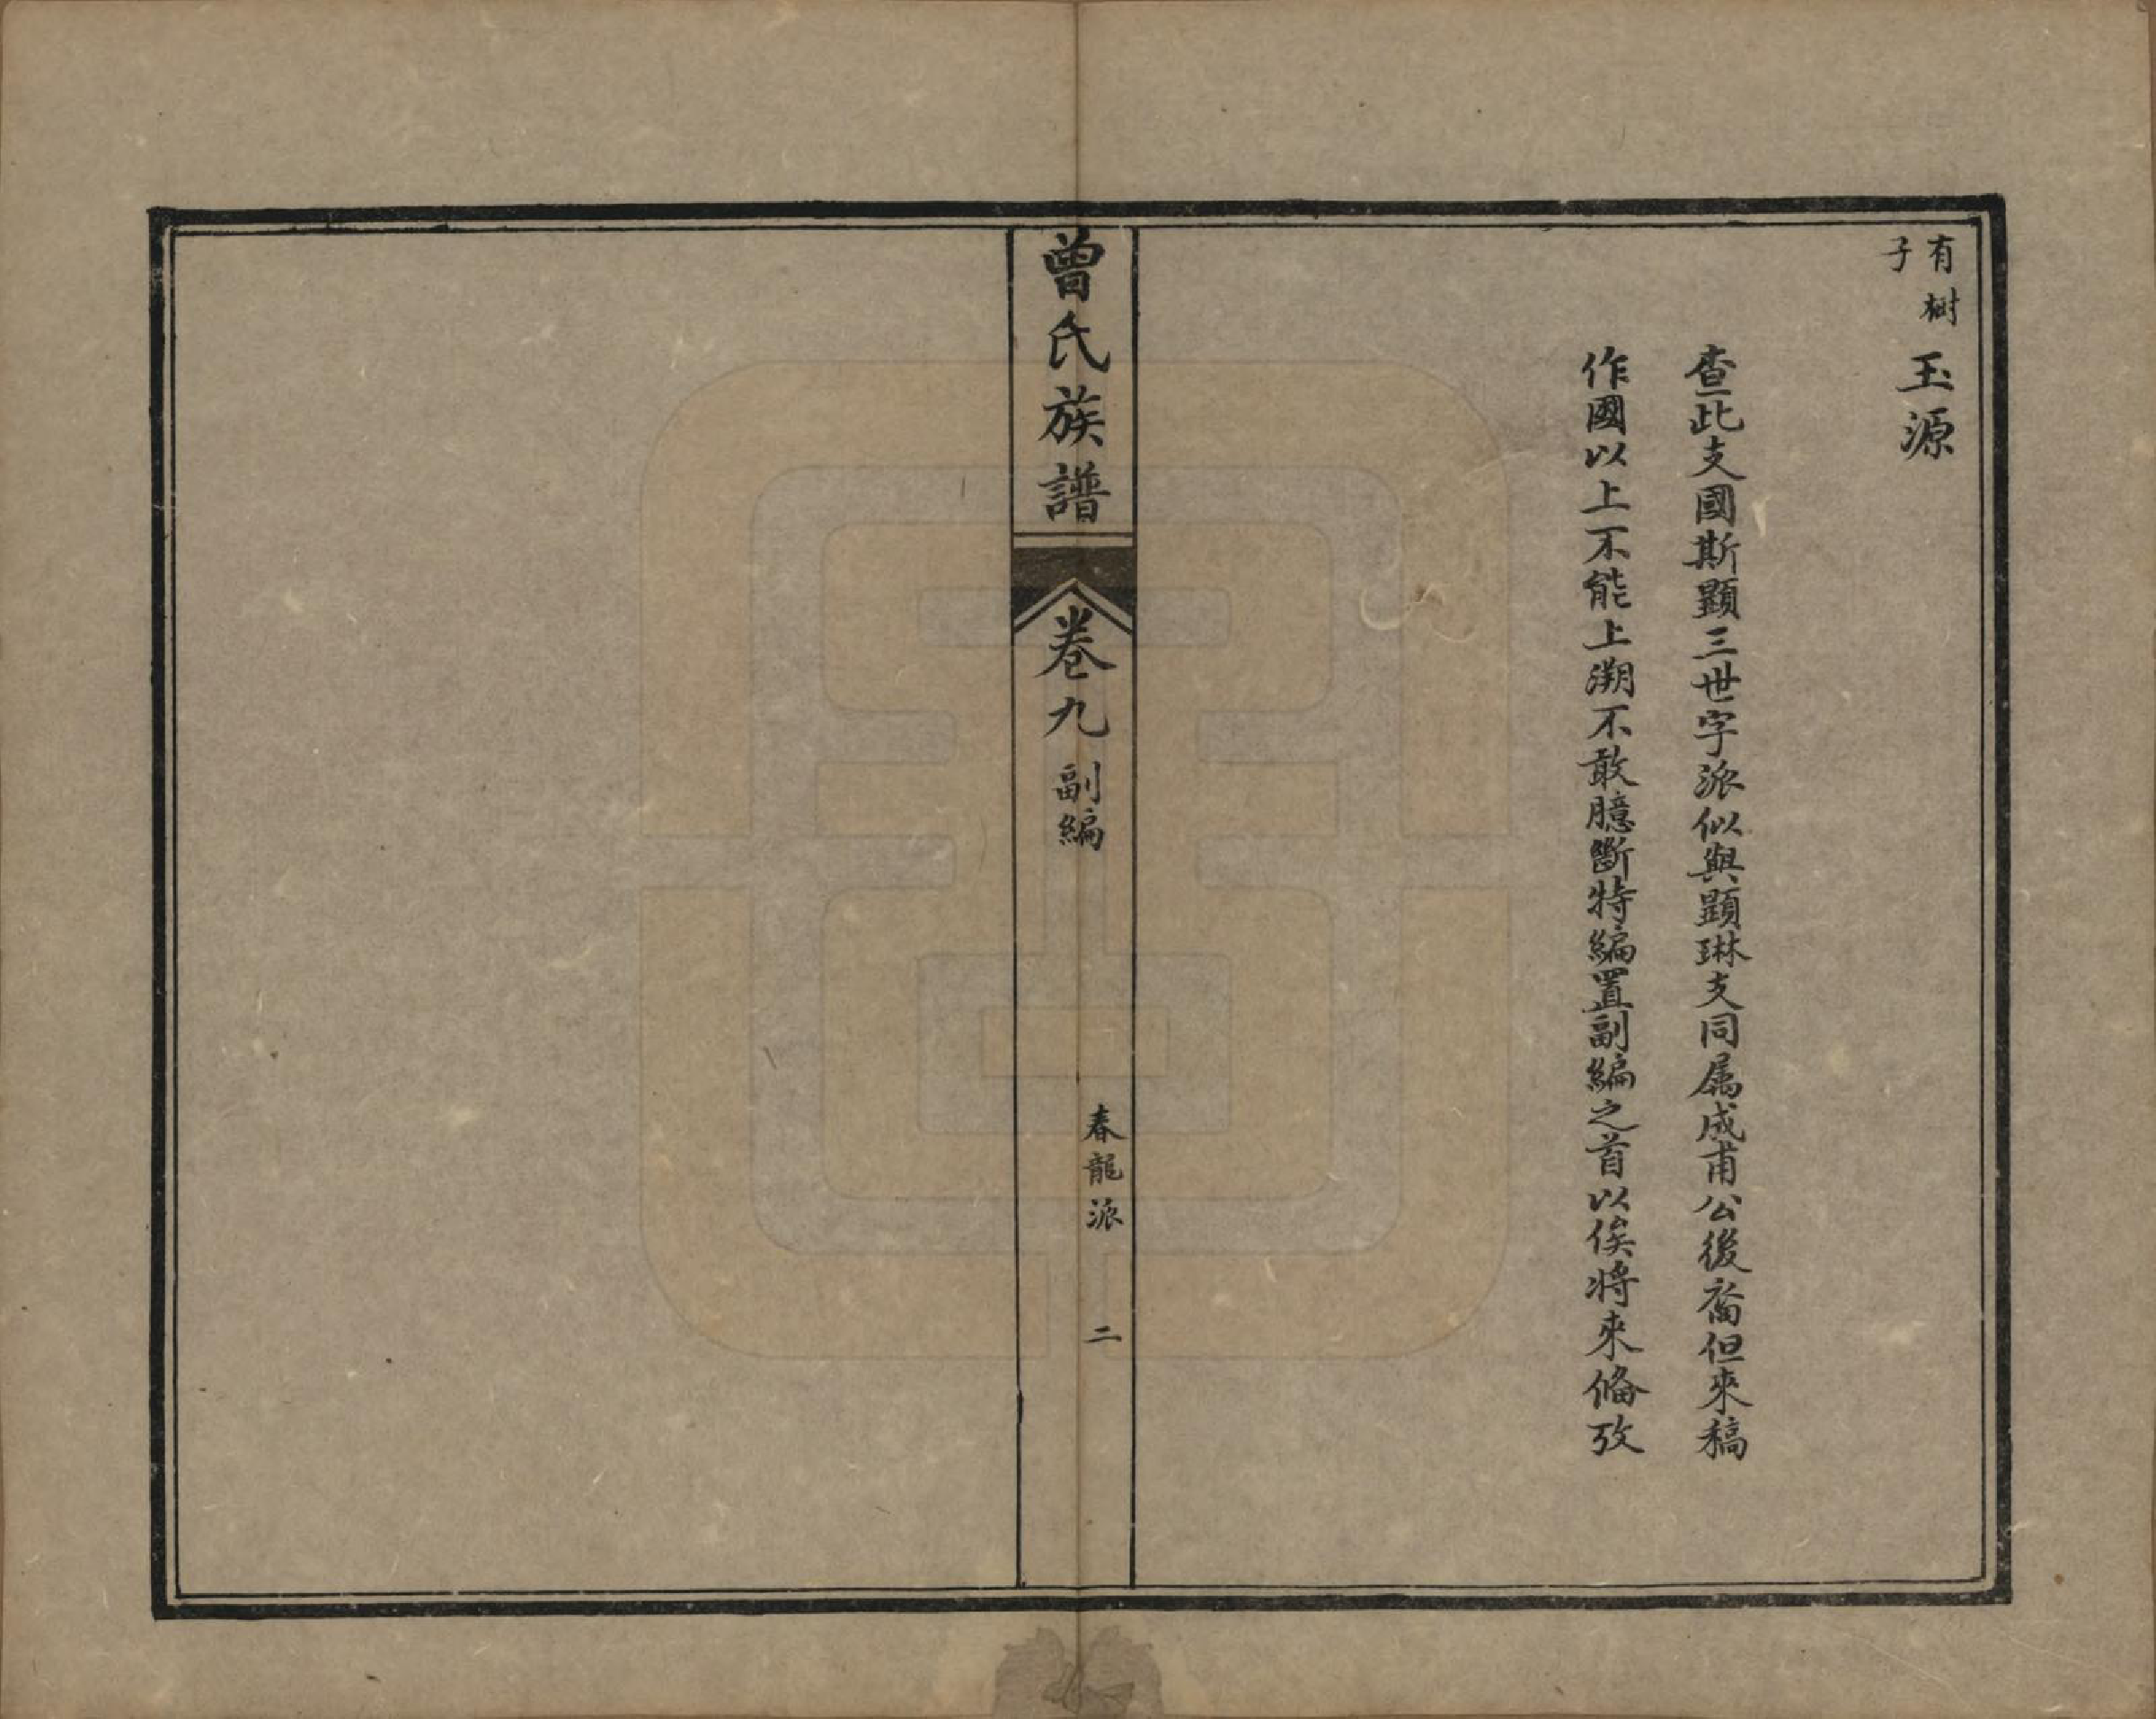 有樹
子
玉源
查此支國斯顯三世字派似與顯琳支同屬成甫公後裔但來稿
作國以上不能上溯不敢臆斷特編置副編之首以俟將來脩攷
曾氏族譜
卷九
副編
春龍派
二